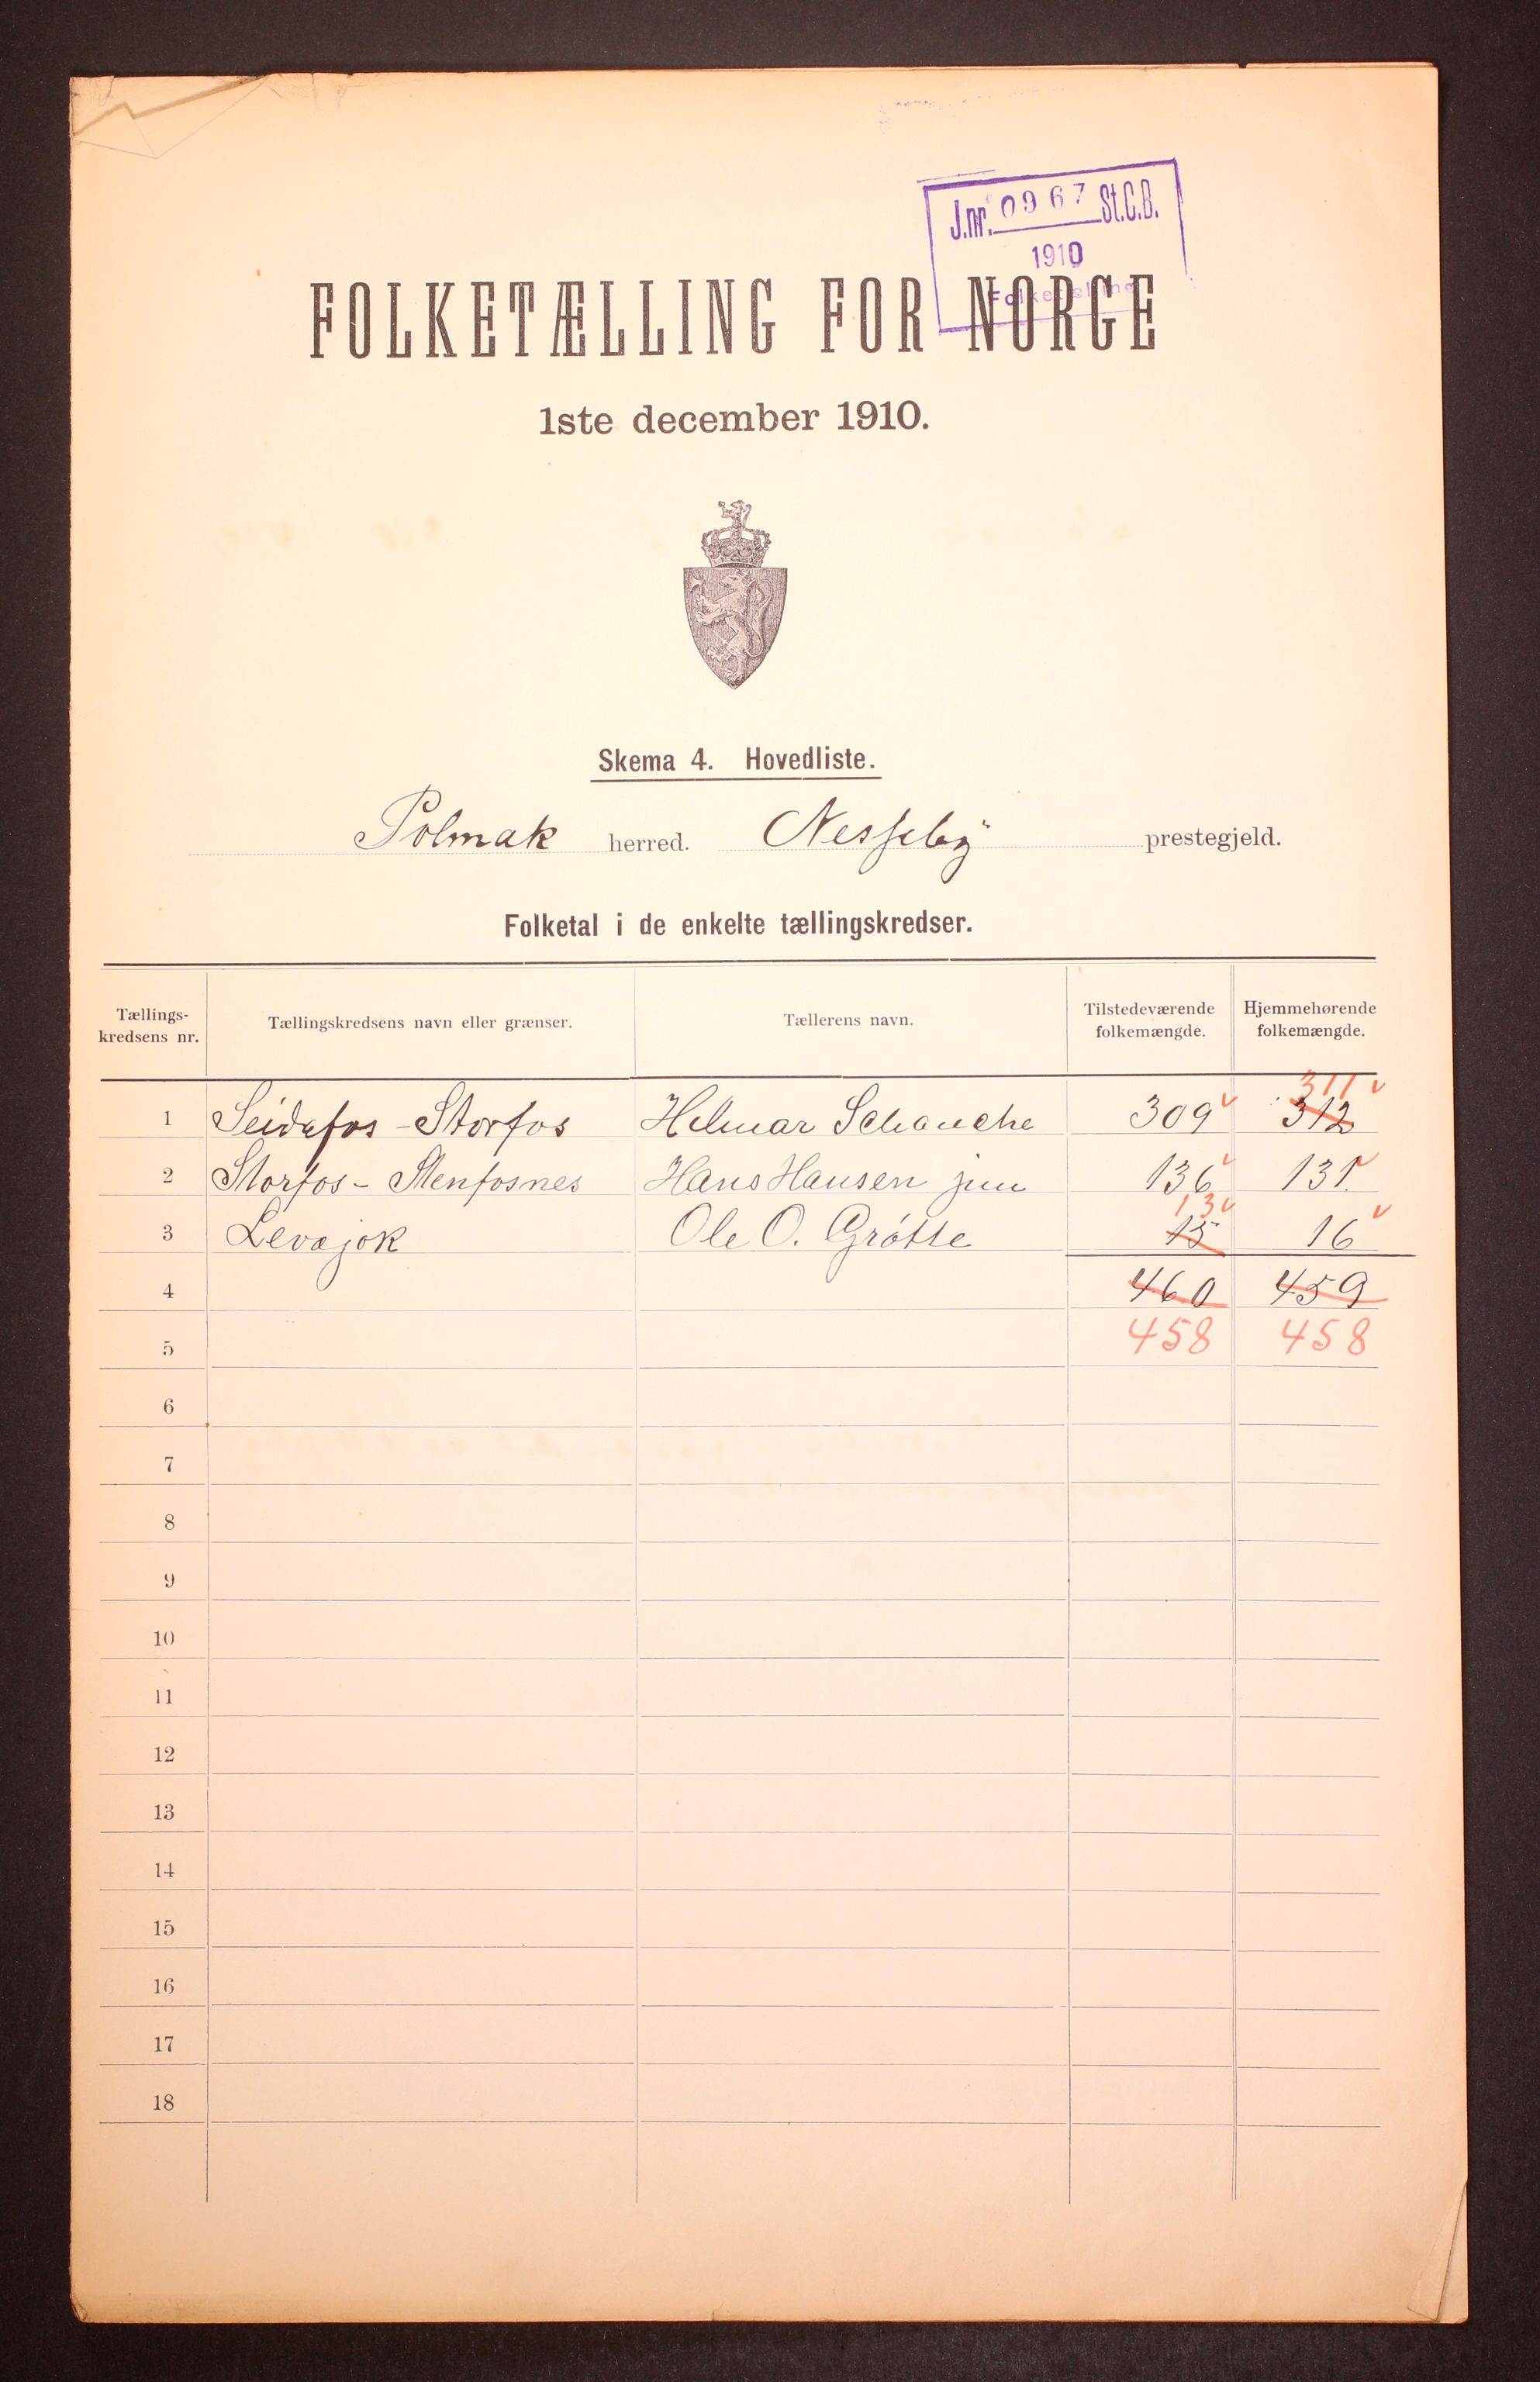 J.nr. 0967 St.C.B.
1910
Folketælling
FOLKETÆLLING FOR NORGE
1ste december 1910.
Skema 4. Hovedliste.
Polmak herred. Nesseby prestegjeld.
Folketal i de enkelte tællingskredser.
Tællings-kredsens nr. Tællingskredsens navn eller grænser. Tællerens navn. Tilstedeværende folkemængde. Hjemmehørende folkemængde.
311
1 Seidafos - Storfos Helmar Schanche 309 312
2 Storfos - Stenfosnes Hans Hansen jun 136 131
13
3 Levajok Ole O. Grøtte 15 16
4 460 459
5 458 458
6
7
8
9
10
11
12
13
14
15
16
17
18